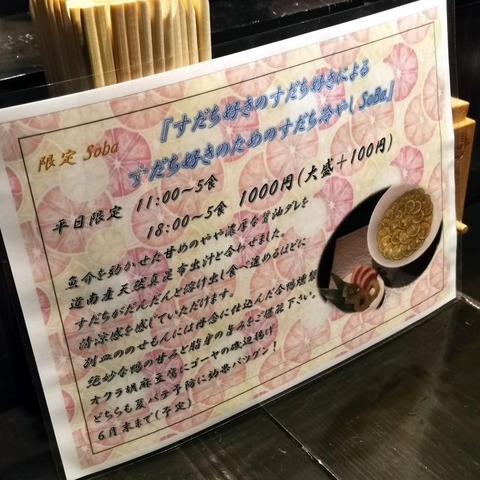 『すだち好きのすだち好きによる
すだち好きのためのすだち冷やしSoBa』
限定 Soba
平日限定 11:00~5食
18:00~5食 1000円(大盛+100円)
魚介を効かせた甘めのやや濃厚な醤油ダレを
道南産天然真昆布出汁と合わせました。
すだちがだんだんと溶け出し食べ進めるほどに
清涼感を感じていただけます。
別皿ののせもんには丹念に仕込んだ合鴨燻製
絶妙な鴨の甘みと脂身の旨みをご堪能下さい。
オクラ胡麻豆腐にゴーヤの磯辺揚げ
どちらも夏バテ予防に効果バツグン!
6月末まで(予定)